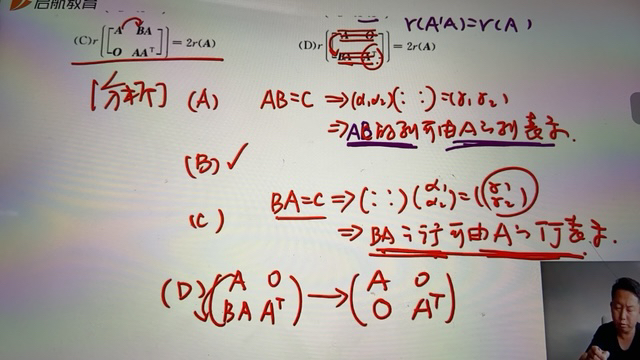 启航教育
r(A'A)=r(A)
(C) r([A BA
O AAᵀ])=2r(A)
(D) r([A O
BA Aᵀ])=2r(A)
[分析] (A) AB=C ⇒(α₁,α₂)(: :)=(γ₁,γ₂)
⇒AB的列可由A之列表示.
(B) ✓
(C) BA=C ⇒(: :)(α₁ α₂)=(γ₁ γ₂)
⇒BA之行可由A之行表示.
(D) (A O
BA Aᵀ)→(A O
O Aᵀ)